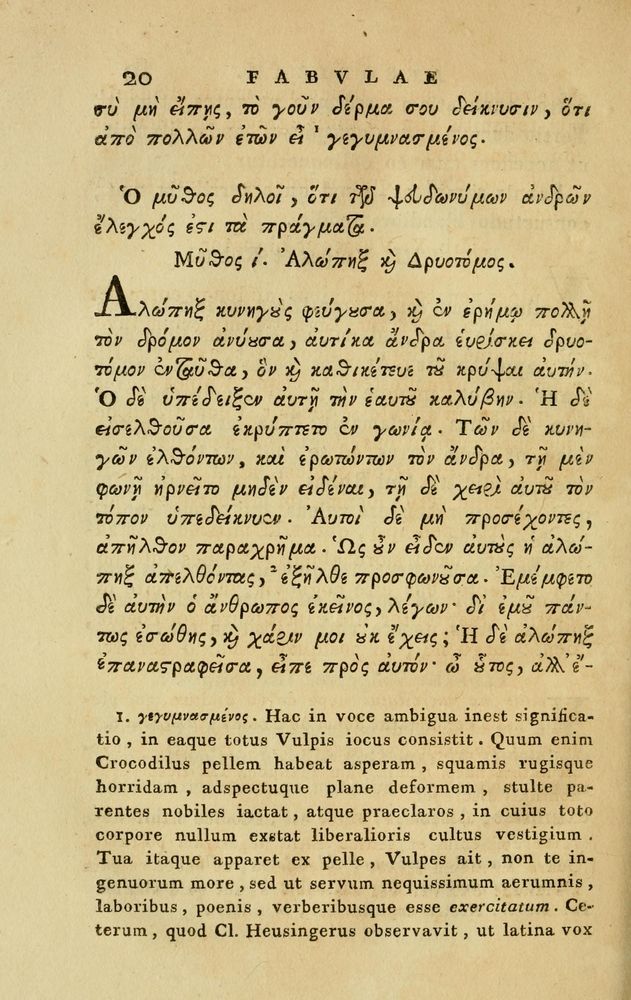 20 FABVLAE
σὺ μὴ εἴπῃς, τὸ γοῦν δέρμα σου δείκνυσιν, ὅτι
ἀπὸ πολλῶν ἐτῶν εἶ ¹ γεγυμνασμένος.
Ὁ μῦθος δηλοῖ, ὅτι τῶν ψευδωνύμων ἀνδρῶν
ἔλεγχός ἐστι τὰ πράγματα.
Μῦθος ί. Ἀλώπηξ καὶ Δρυοτόμος.
Ἀλώπηξ κυνηγοὺς φεύγουσα, καὶ ἐν ἐρήμῳ πολλῇ
τὸν δρόμον ἀνύουσα, αὐτίκα ἄνδρα εὑρίσκει δρυο-
τόμον ἐνταῦθα, ὃν καὶ καθικέτευε τοῦ κρύψαι αὐτήν.
Ὁ δὲ ὑπέδειξεν αὐτῇ τὴν ἑαυτοῦ καλύβην. Ἡ δὲ
εἰσελθοῦσα ἐκρύπτετο ἐν γωνίᾳ. Τῶν δὲ κυνη-
γῶν ἐλθόντων, καὶ ἐρωτόντων τὸν ἄνδρα, τῇ μὲν
φωνῇ ἠρνεῖτο μηδὲν εἰδέναι, τῇ δὲ χειρὶ αὐτοῦ τὸν
τόπον ὑπεδείκνυεν. Αὐτοὶ δὲ μὴ προσέχοντες,
ἀπῆλθον παραχρῆμα. Ὡς οὖν εἶδεν αὐτοὺς ἡ ἀλώ-
πηξ ἀπελθόντας, ² ἐξῆλθε προσφωνοῦσα. Ἐμέμφετο
δὲ αὐτὴν ὁ ἄνθρωπος ἐκεῖνος, λέγων· δἰ ἐμοῦ πάν-
τως ἐσώθης, καὶ χάριν μοι οὐκ ἔχεις; Ἡ δὲ ἀλώπηξ
ἐπαναστραφεῖσα, εἶπε πρὸς αὐτόν· ὦ οὗτος, ἀλλ' ἔ-
1. γεγυμνασμένος. Hac in voce ambigua inest significa-
tio, in eaque totus Vulpis iocus consistit. Quum enim
Crocodilus pellem habeat asperam, squamis rugisque
horridam, adspectuque plane deformem, stulte pa-
rentes nobiles iactat, atque praeclaros, in cuius toto
corpore nullum exstat liberalioris cultus vestigium.
Tua itaque apparet ex pelle, Vulpes ait, non te in-
genuorum more, sed ut servum nequissimum aerumnis,
laboribus, poenis, verberibusque esse exercitatum. Ce-
terum, quod Cl. Heusingerus observavit, ut latina vox